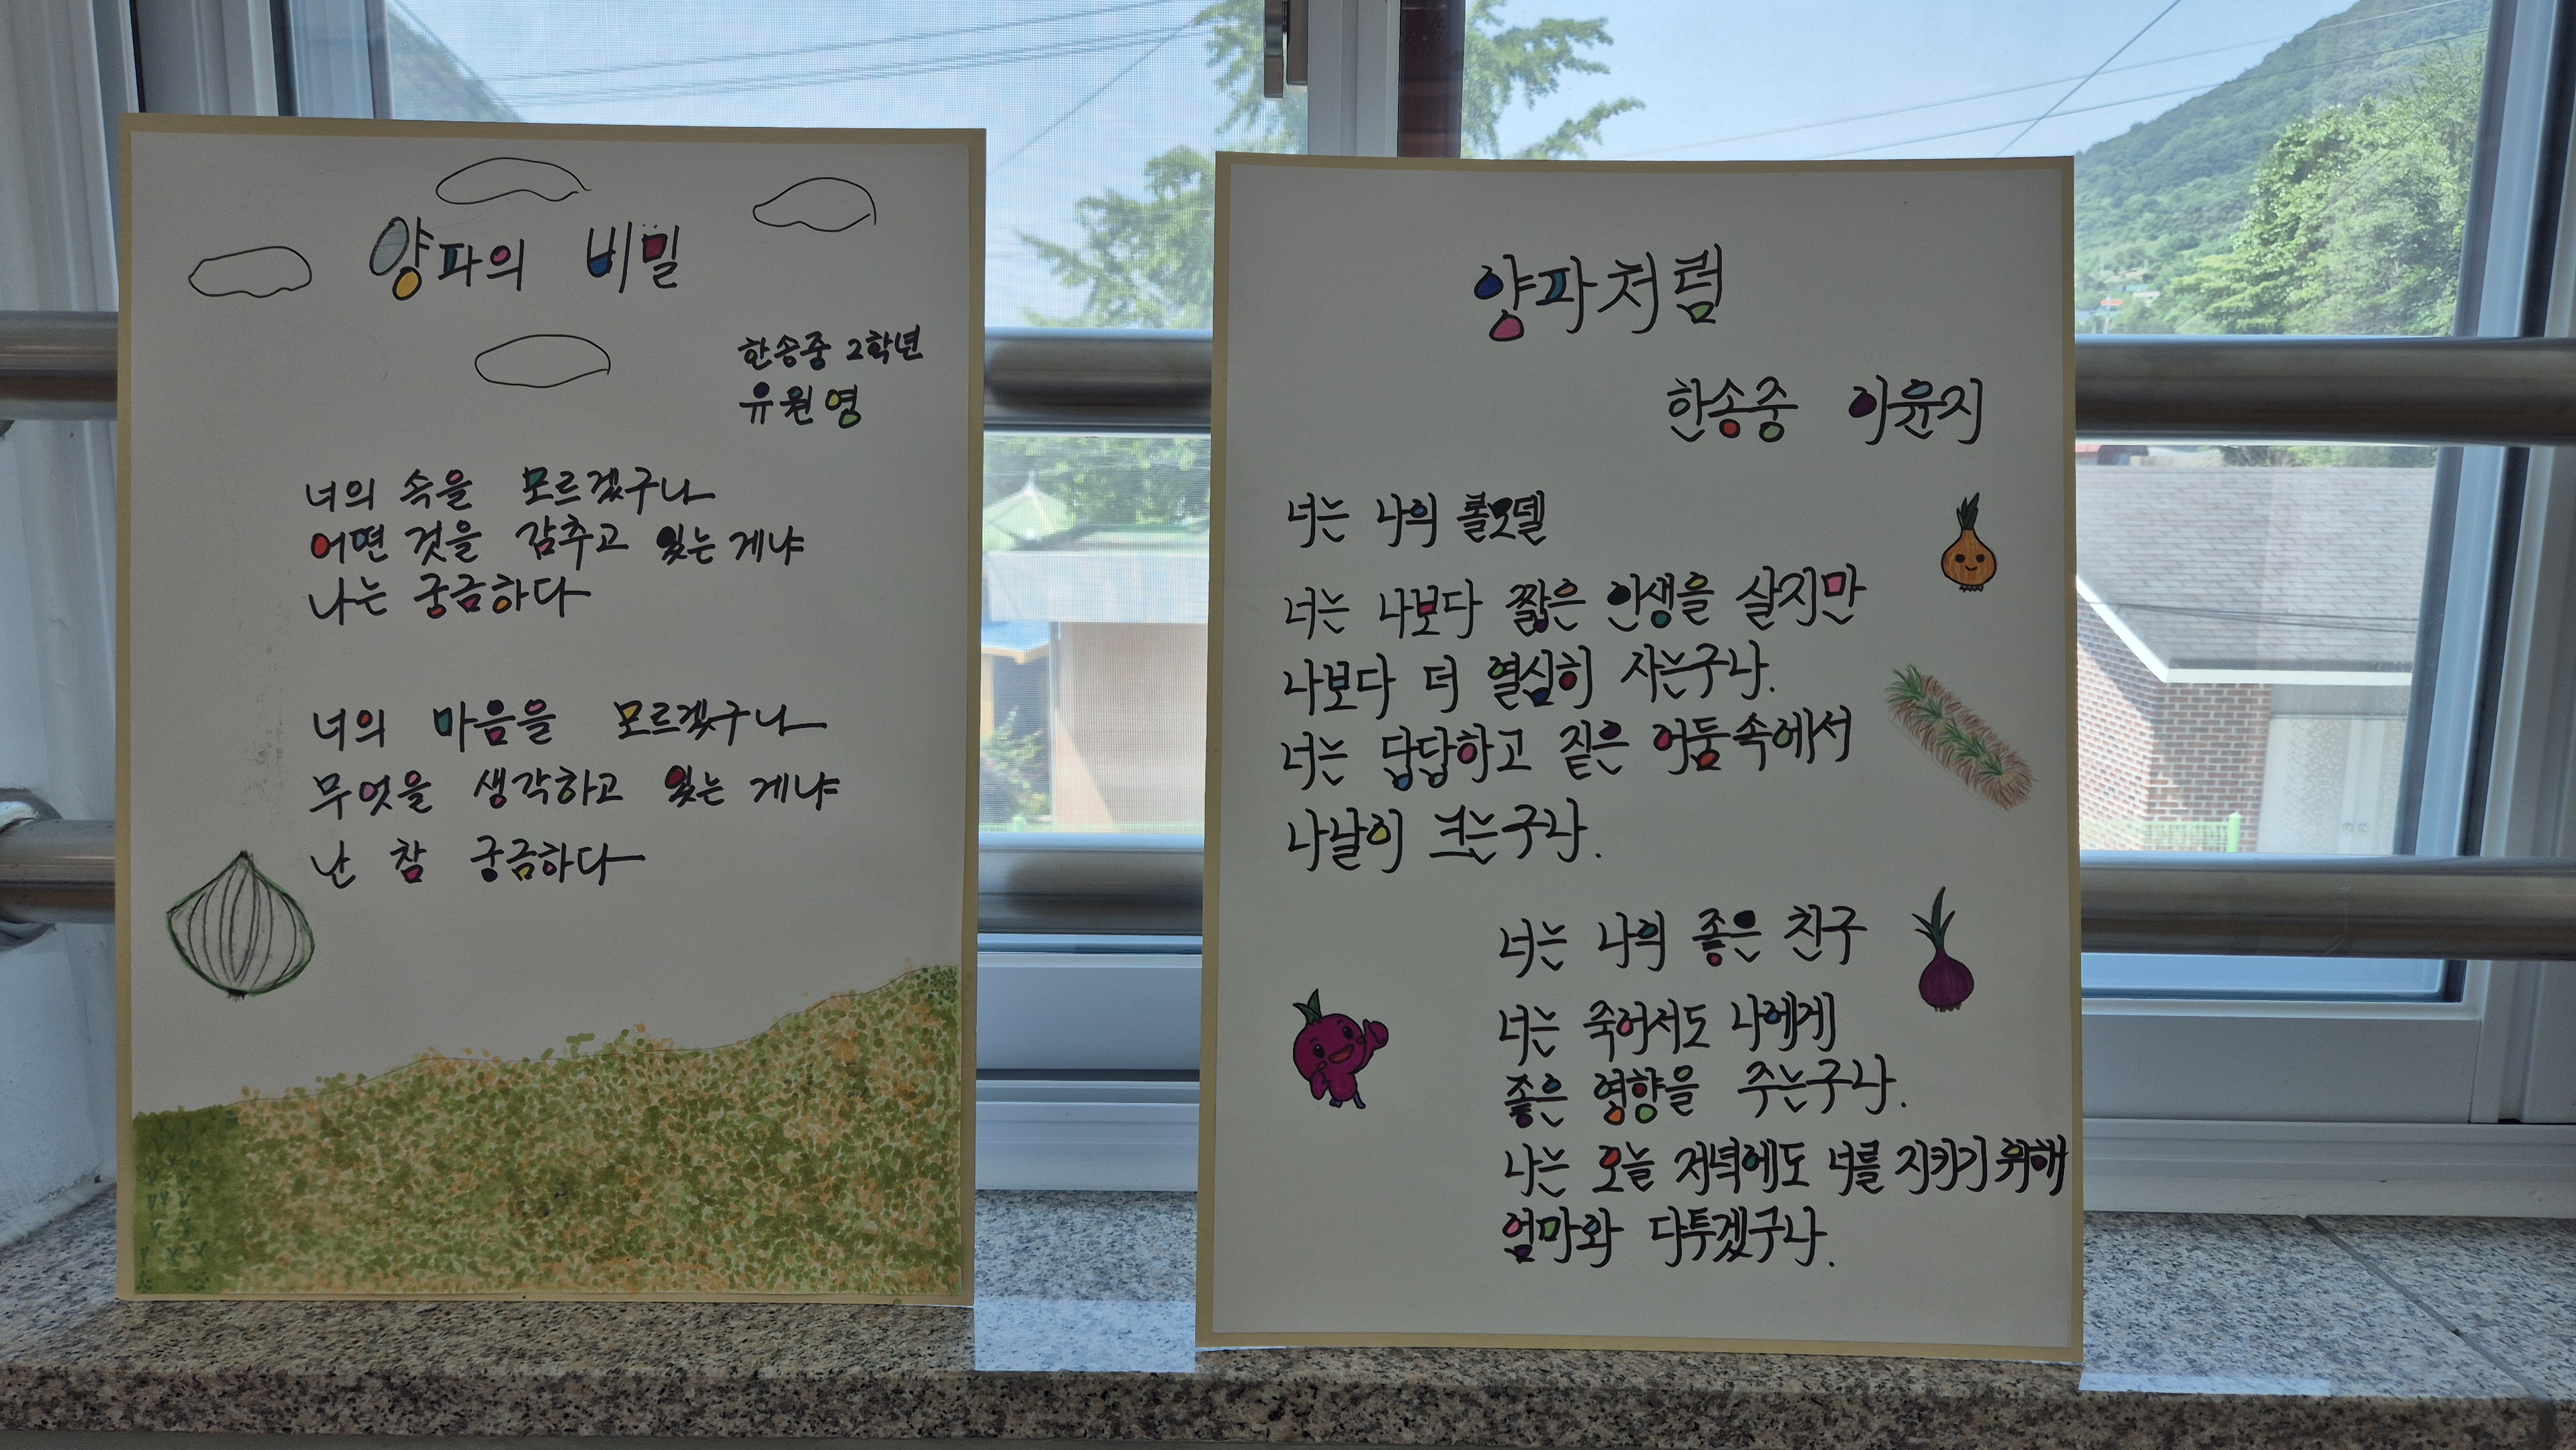 양파의 비밀
한송중 2학년
유원영
너의 속을 모르겠구나
어떤 것을 감추고 있는 게냐
나는 궁금하다
너의 마음을 모르겠구나
무엇을 생각하고 있는 게냐
난 참 궁금하다
양파처럼
한송중 이윤지
너는 나의 롤모델
너는 나보다 짧은 인생을 살지만
나보다 더 열심히 사는구나.
너는 답답하고 짙은 어둠속에서
나날이 크는구나.
너는 나의 좋은 친구
너는 죽어서도 나에게
좋은 영향을 주는구나.
나는 오늘 저녁에도 너를 지키기 위해
엄마와 다투겠구나.